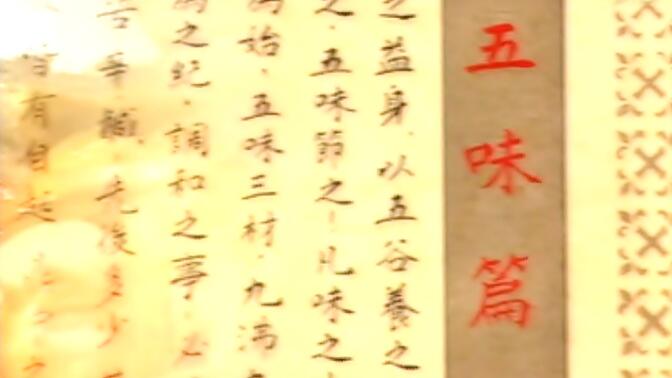 五味篇
之益身.以五谷養之
之.五味節之!凡味之
始.五味三材.九沸
之紀.調和之事.必
辛鹹.先後多少
皆有自起